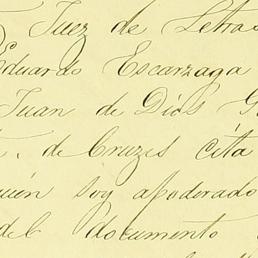 Juez de Letras
Eduardo Escarzaga
Juan de Dios G
de Cruzes cita
quien soy apoderado
del documento